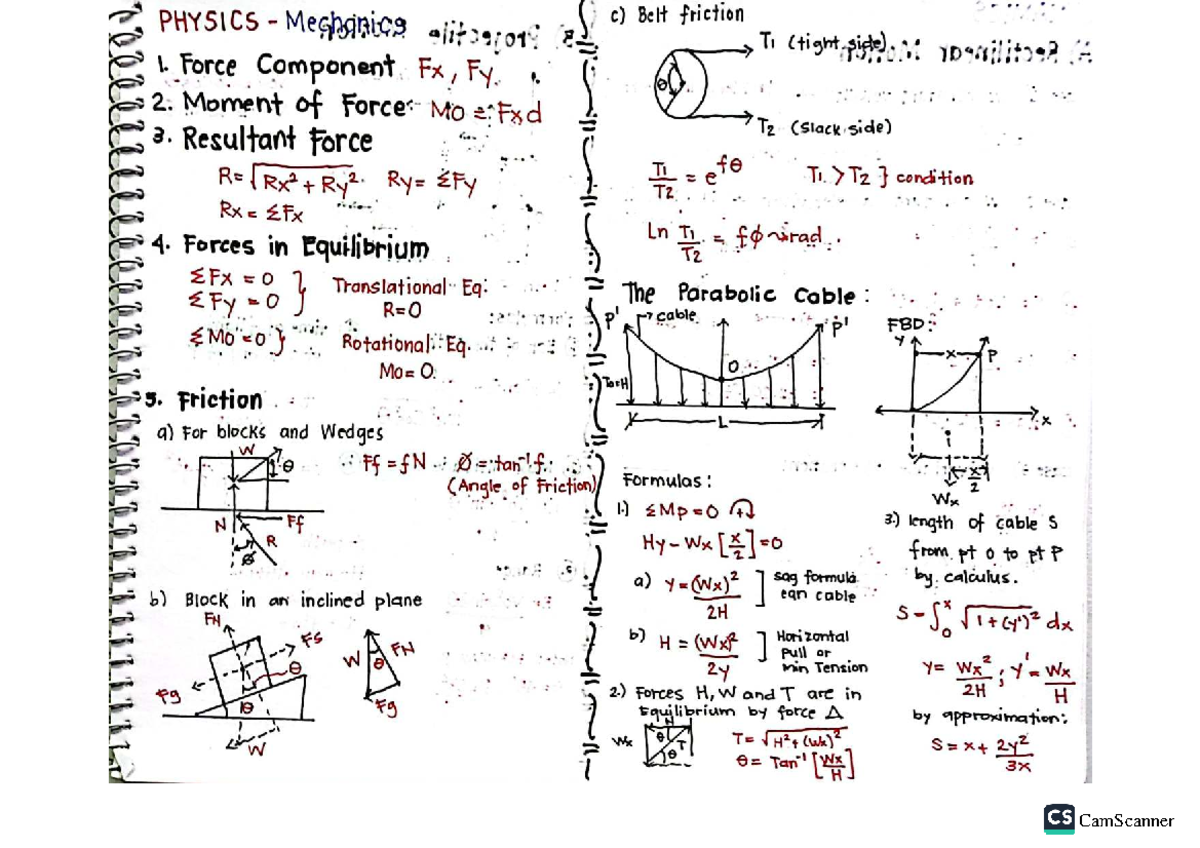 PHYSICS - Mechanics
1. Force Component Fx, Fy.
2. Moment of Force Mo = Fxd
3. Resultant Force
R = √Rx² + Ry² Ry = ΣFy
Rx = ΣFx
4. Forces in Equilibrium
ΣFx = 0
ΣFy = 0 } Translational Eq:
R=0
ΣMo = 0 } Rotational Eq.
Mo = 0
5. Friction
a) For blocks and Wedges
W
θ
Ff = fN Ø = tan⁻¹ f
(Angle of Friction)
N
Ff
R
Ø
b) Block in an inclined plane
FN
FS
θ
Fg
θ
W
W θ FN
Fg
c) Belt friction
T1 (tight side)
θ
T2 (slack side)
T1/T2 = e^fθ T1 > T2 } condition
Ln T1/T2 = fφ → rad.
The Parabolic Cable:
P' cable P'
O
To=H
L
FBD:
Y
x P
x
x/2
Wx
Formulas:
1.) ΣMp = 0
Hy - Wx [x/2] = 0
a) Y = (Wx)²/2H ] sag formula
eqn cable
b) H = (Wx)²/2y ] Horizontal
Pull or
Min Tension
2.) Forces H, W and T are in
Equilibrium by force Δ
H
Wx θ T
θ
T = √H² + (Wx)²
θ = Tan⁻¹ [Wx/H]
3.) length of cable S
from pt O to pt P
by calculus.
S - ∫₀ˣ √1 + (y')² dx
Y = Wx²/2H ; Y' = Wx/H
by approximation:
S = x + 2y²/3x
CS CamScanner